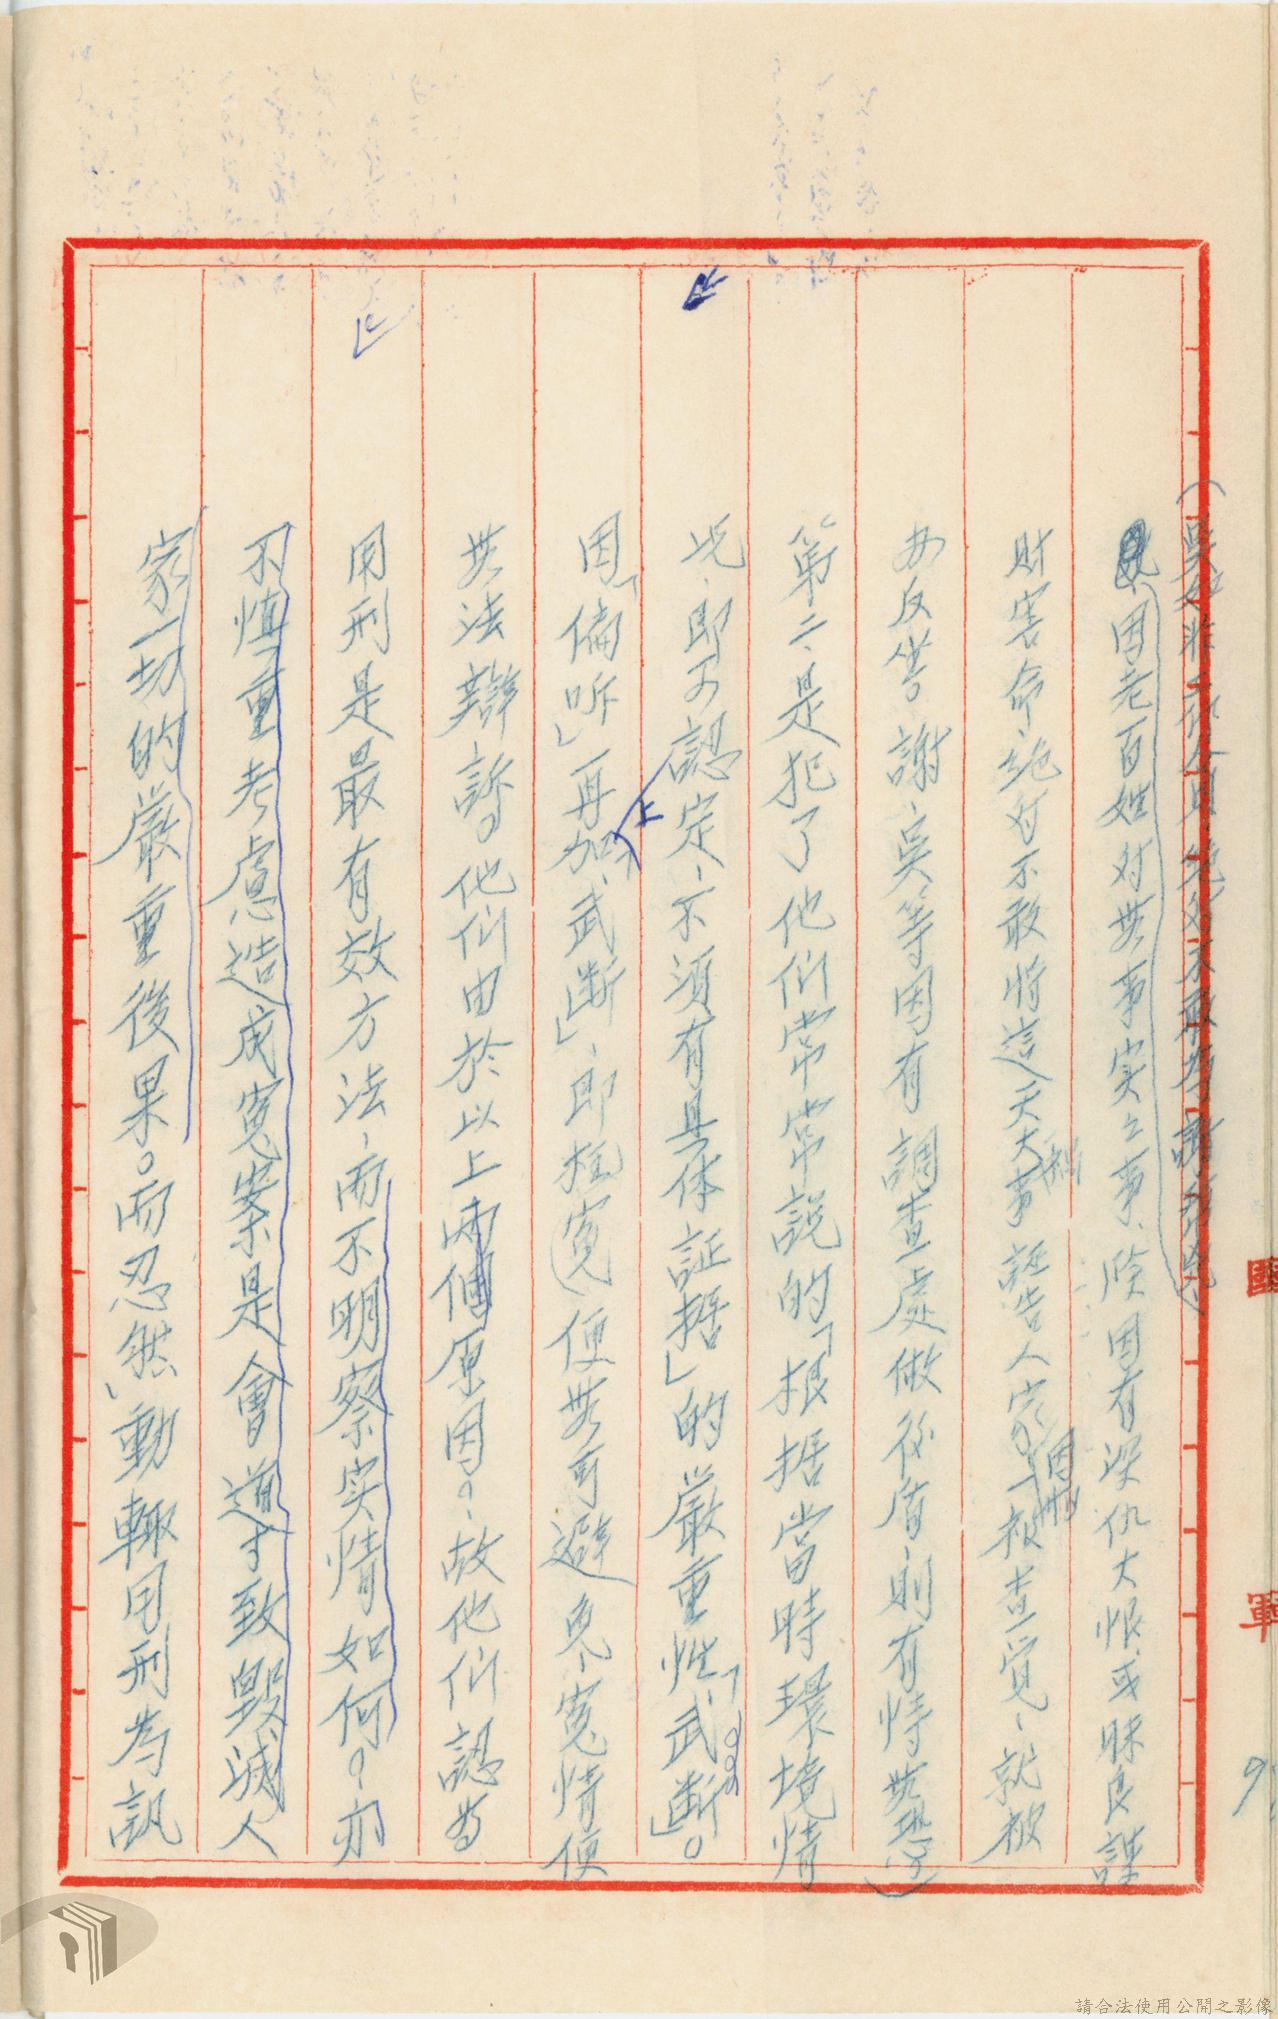 (吳如非工作人員絕对不敢為諉而冤、
因老百姓对無事实之事、除因有深仇大恨或昧良謀
財害命、絕对不敢將這天大事誣告人家。一被查覚、就被
办反告。謝、吳等因有調查處做后盾、則有恃無恐。)
第二、是犯了他们常常說的「根据當時環境情
况、即可認定、不須有具体証据」的嚴重性「武断」。
因「偏听」再加上「武断」、即枉冤便無可避免、冤情便
無法辯訴。他们由於以上兩個原因。、故他们認为
用刑是最有效方法、而不明察实情如何。、亦
不慎重考慮造成冤案是會導致毀滅人
家一切的嚴重後果。而忍然、動輒用刑為訊
國
軍
9
請合法使用公開之影像